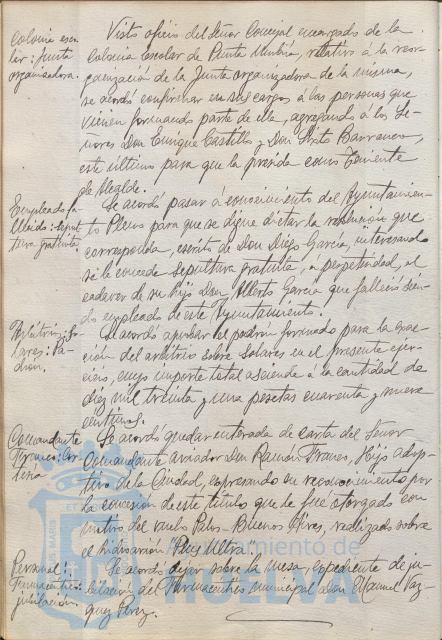 Colonia esco-
lar: Junta
organizadora.
Visto oficio del Señor Concejal encargado de la
Colonia escolar de Punta Umbría, relativo á la reor-
ganización de la Junta organizadora de la misma,
se acordó confirmar en sus cargos á las personas que
vienen formando parte de ella, agregando á los Se-
ñores Don Enrique Castillo y Don Sixto Barranco,
este último para que la presida como Teniente
de Alcalde.
Empleado fa-
llecido: sepul-
tura gratuita.
Se acordó pasar á conocimiento del Ayuntamien-
to Pleno para que se digne dictar la resolución que
corresponda, escrito de Don Diego García, interesando
se le conceda sepultura gratuita, á perpetuidad, al
cadáver de su hijo Don Alberto García que falleció sien-
do empleado de este Ayuntamiento.
Arbitrio: So-
lares: Pa-
drón.
Se acordó aprobar el padrón formado para la exac-
ción del arbitrio sobre Solares en el presente ejer-
cicio, cuyo importe total asciende á la cantidad de
diez mil treinta y una pesetas cuarenta y nueve
céntimos.
Comandante
Franco: Car-
ta
Se acordó quedar enterada de carta del Señor
Comandante aviador Don Ramón Franco, Hijo adop-
tivo de la Ciudad, expresando su reconocimiento por
la concesión de este título que le fué otorgado con
motivo del vuelo Palos-Buenos Aires, realizado sobre
el hidroavión "Plus Ultra".
Personal:
Farmacéutico:
jubilación.
Se acordó dejar sobre la mesa, expediente de ju-
bilación del Farmacéutico municipal Don Manuel Váz-
quez Pérez.
Ayuntamiento de
HUELVA